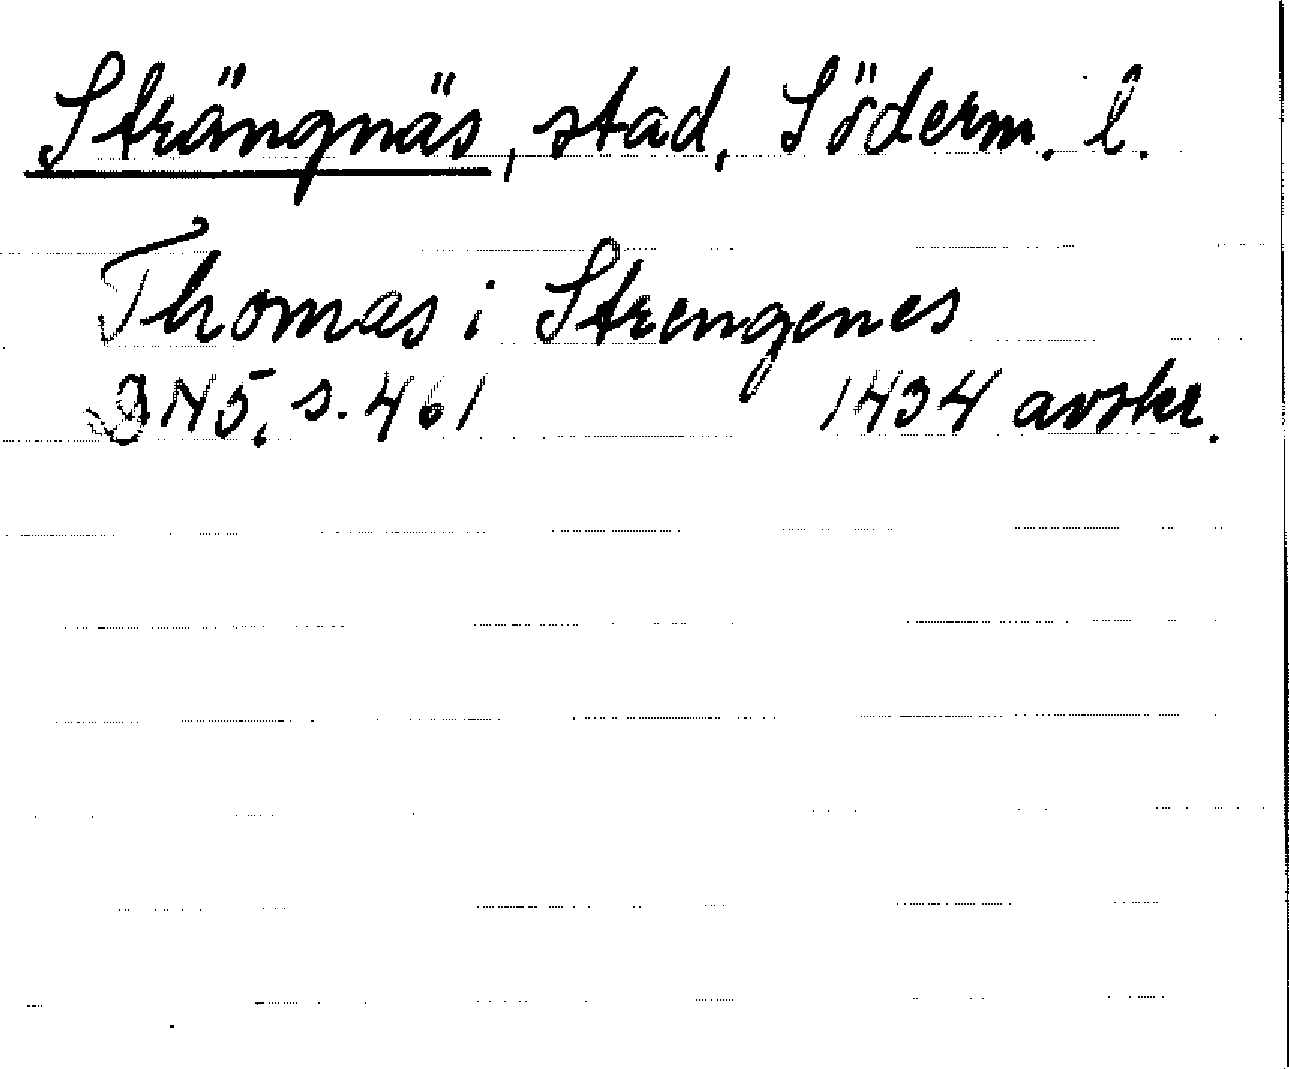 Strängnäs, stad, Söderm. l.
Thomas i Strengenes
DN5, s. 461 1434 avskr.